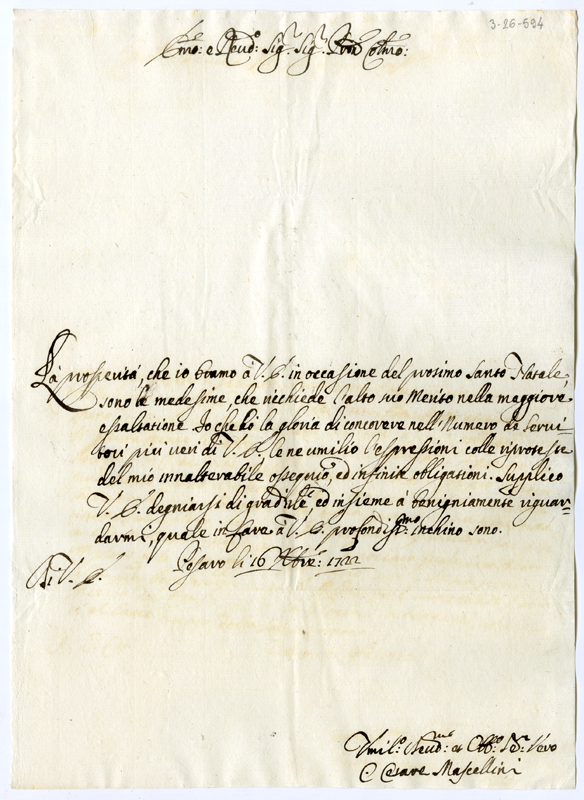 3-26-594
Emo: e Reud:o Sig.r Sig.r Pron Colmo:
La prosperità, che io bramo à V. E. in occasione del prosimo Santo Natale,
sono le medesime, che richiede l'alto suo Merito nella maggiore
essaltatione. Io che hò la gloria di concorere nell'Numero de Servi-
tori piu veri di V. E. le ne umilio l'espressioni colle riproteste
del mio innalterabile ossequio, ed infinite obligationi. Supplico
V. E. degniarsi di gradirle ed insieme a benigniamente riguar-
darmi, quale in fare à V. E. profondiss:mo inchino sono.
Pesaro li 16 Xbre: 1722
Di V. E.
Umil:o Reud:mo et Obb:o Se:r Vero
C Cesare Mascellini